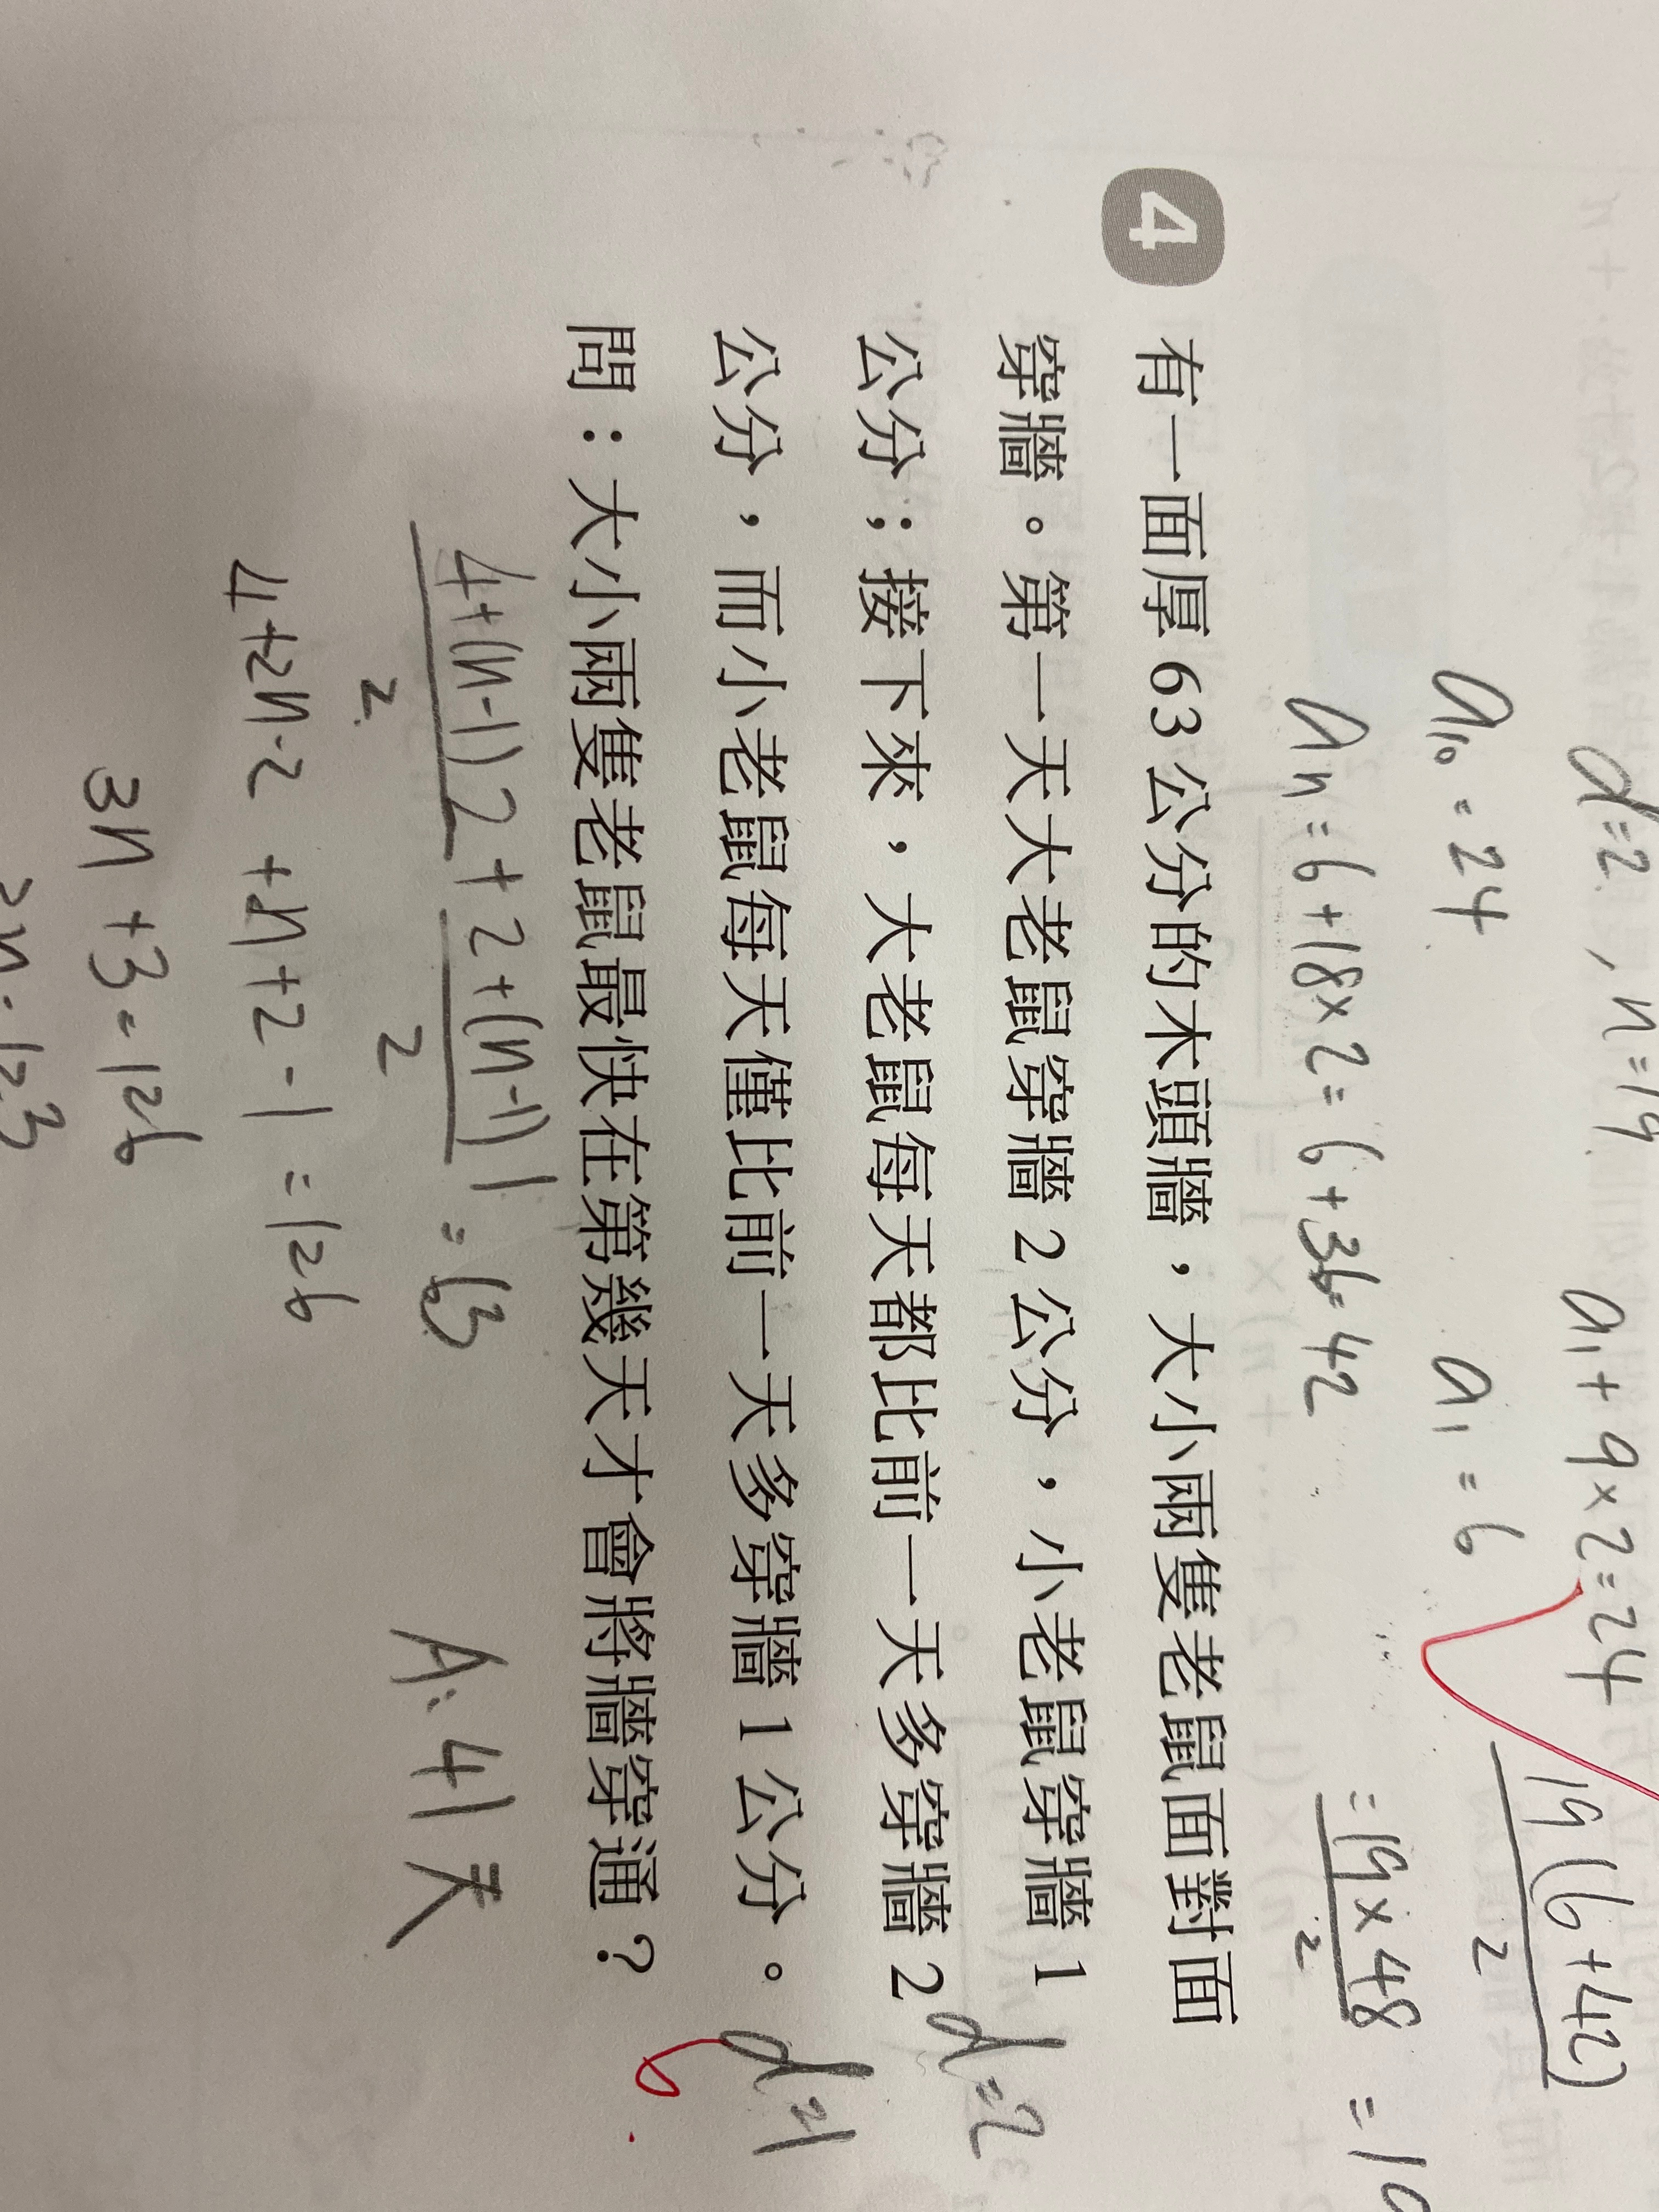 d=2, n=19 a₁+9×2=24
a₁₀=24 a₁=6 19(6+42)
2
aₙ=6+18×2=6+36=42 =19×48
2
4 有一面厚 63 公分的木頭牆，大小兩隻老鼠面對面
穿牆。第一天大老鼠穿牆 2 公分，小老鼠穿牆 1
公分；接下來，大老鼠每天都比前一天多穿牆 2
d=2
公分，而小老鼠每天僅比前一天多穿牆 1 公分。
d=1
問：大小兩隻老鼠最快在第幾天才會將牆穿通？
4+(n-1)2 + 2+(n-1)1 = 63
2 2
A:41天
4+2n-2 +n+2-1 =126
3n+3=126